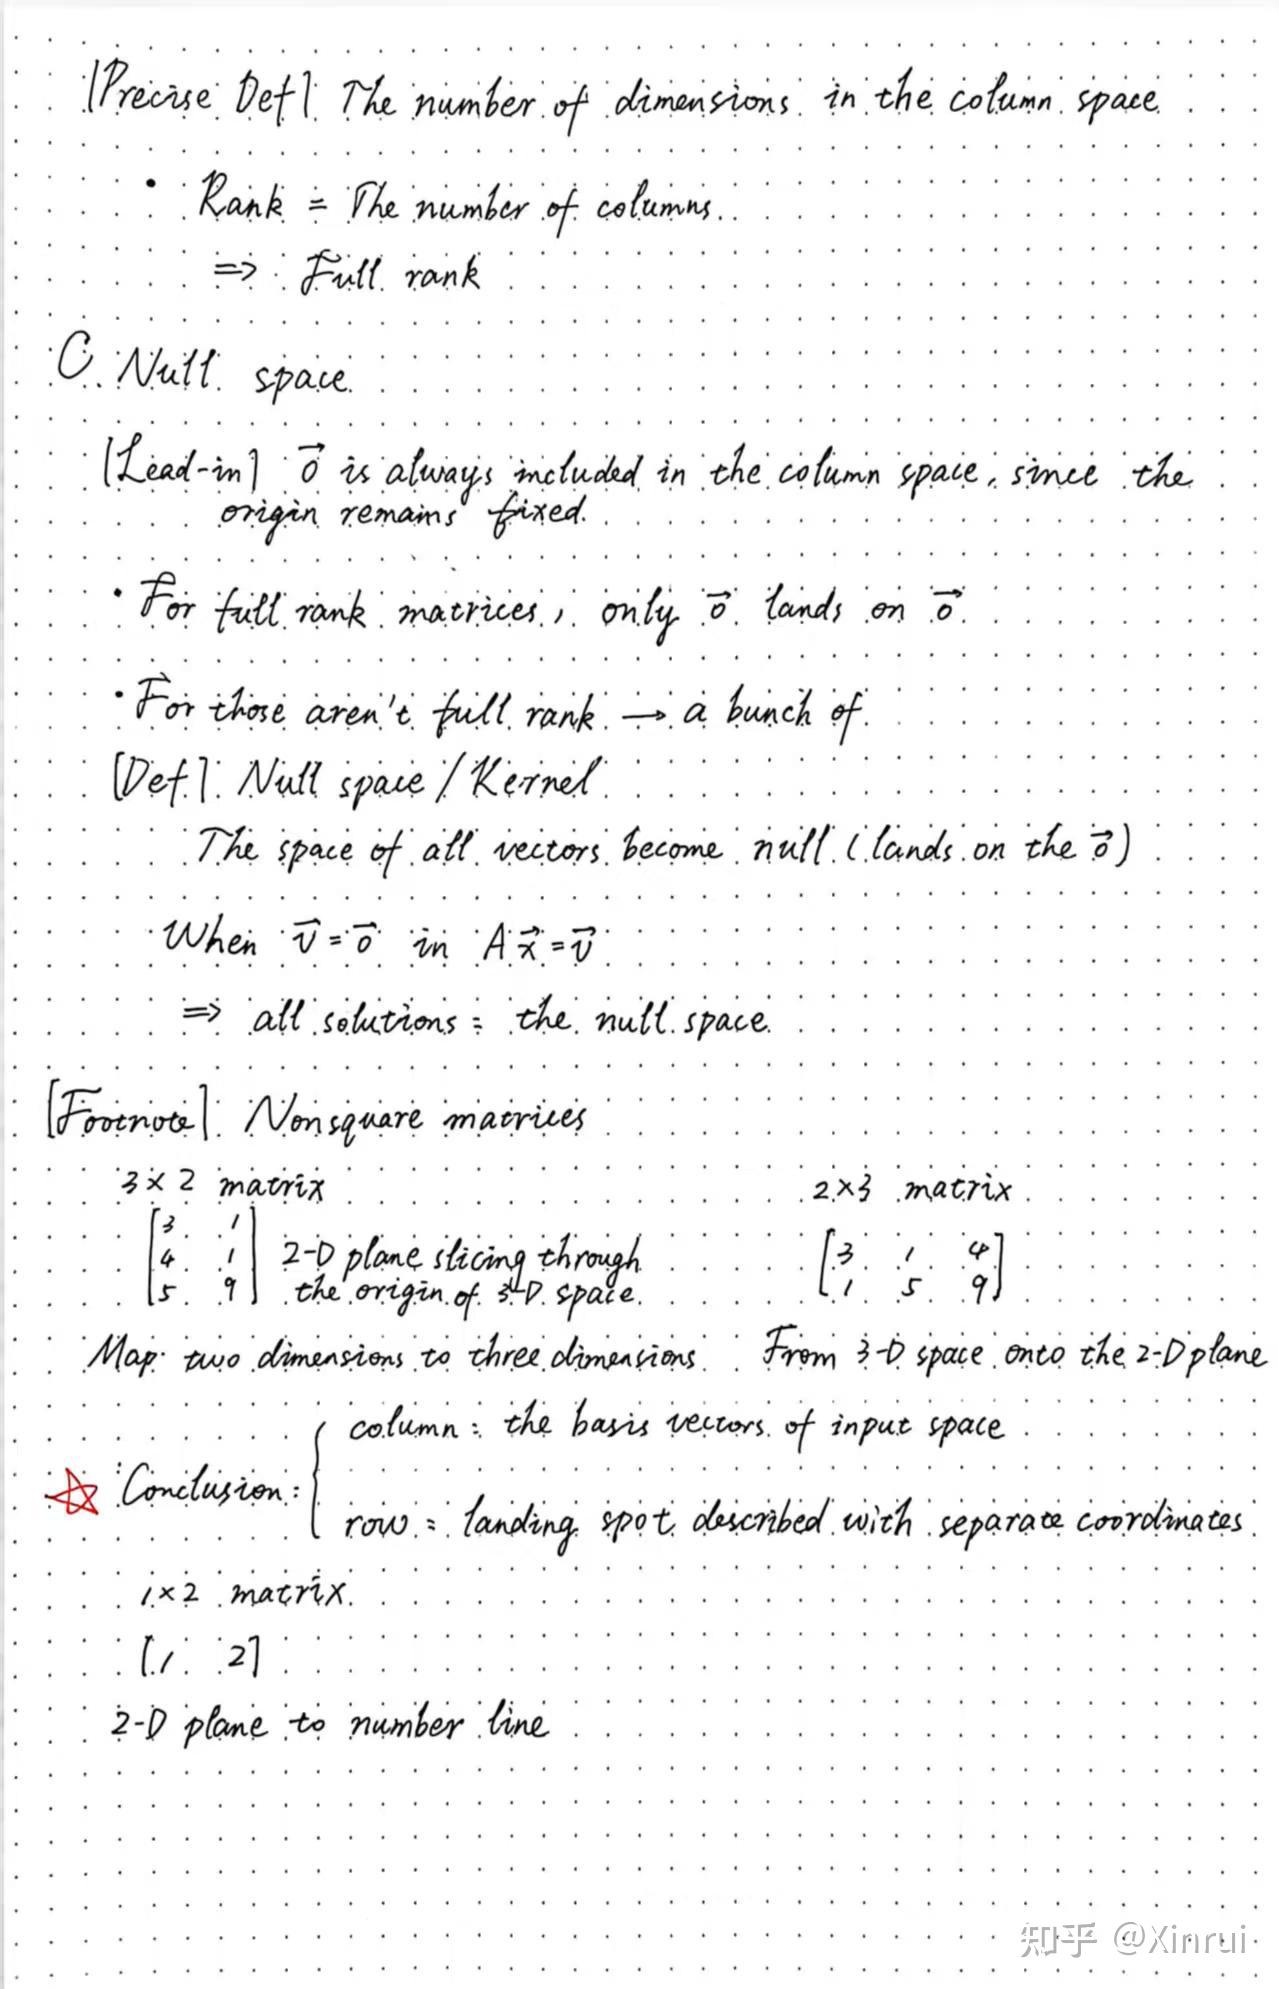 [Precise Def] The number of dimensions in the column space
• Rank = The number of columns.
=> Full rank
C. Null space
[Lead-in] 0⃗ is always included in the column space, since the
origin remains fixed.
• For full rank matrices, only 0⃗ lands on 0⃗
• For those aren't full rank → a bunch of
[Def] Null space / Kernel
The space of all vectors become null (lands on the 0⃗)
When v⃗ = 0⃗ in A x⃗ = v⃗
=> all solutions = the null space
[Footnote] Nonsquare matrices
3×2 matrix
[3 1
4 1
5 9]
2-D plane slicing through
the origin of 3-D space.
Map two dimensions to three dimensions
2×3 matrix
[3 1 4
1 5 9]
From 3-D space onto the 2-D plane
☆ Conclusion: { column: the basis vectors of input space
row: landing spot described with separate coordinates
1×2 matrix
[1 2]
2-D plane to number line
知乎 @Xinrui